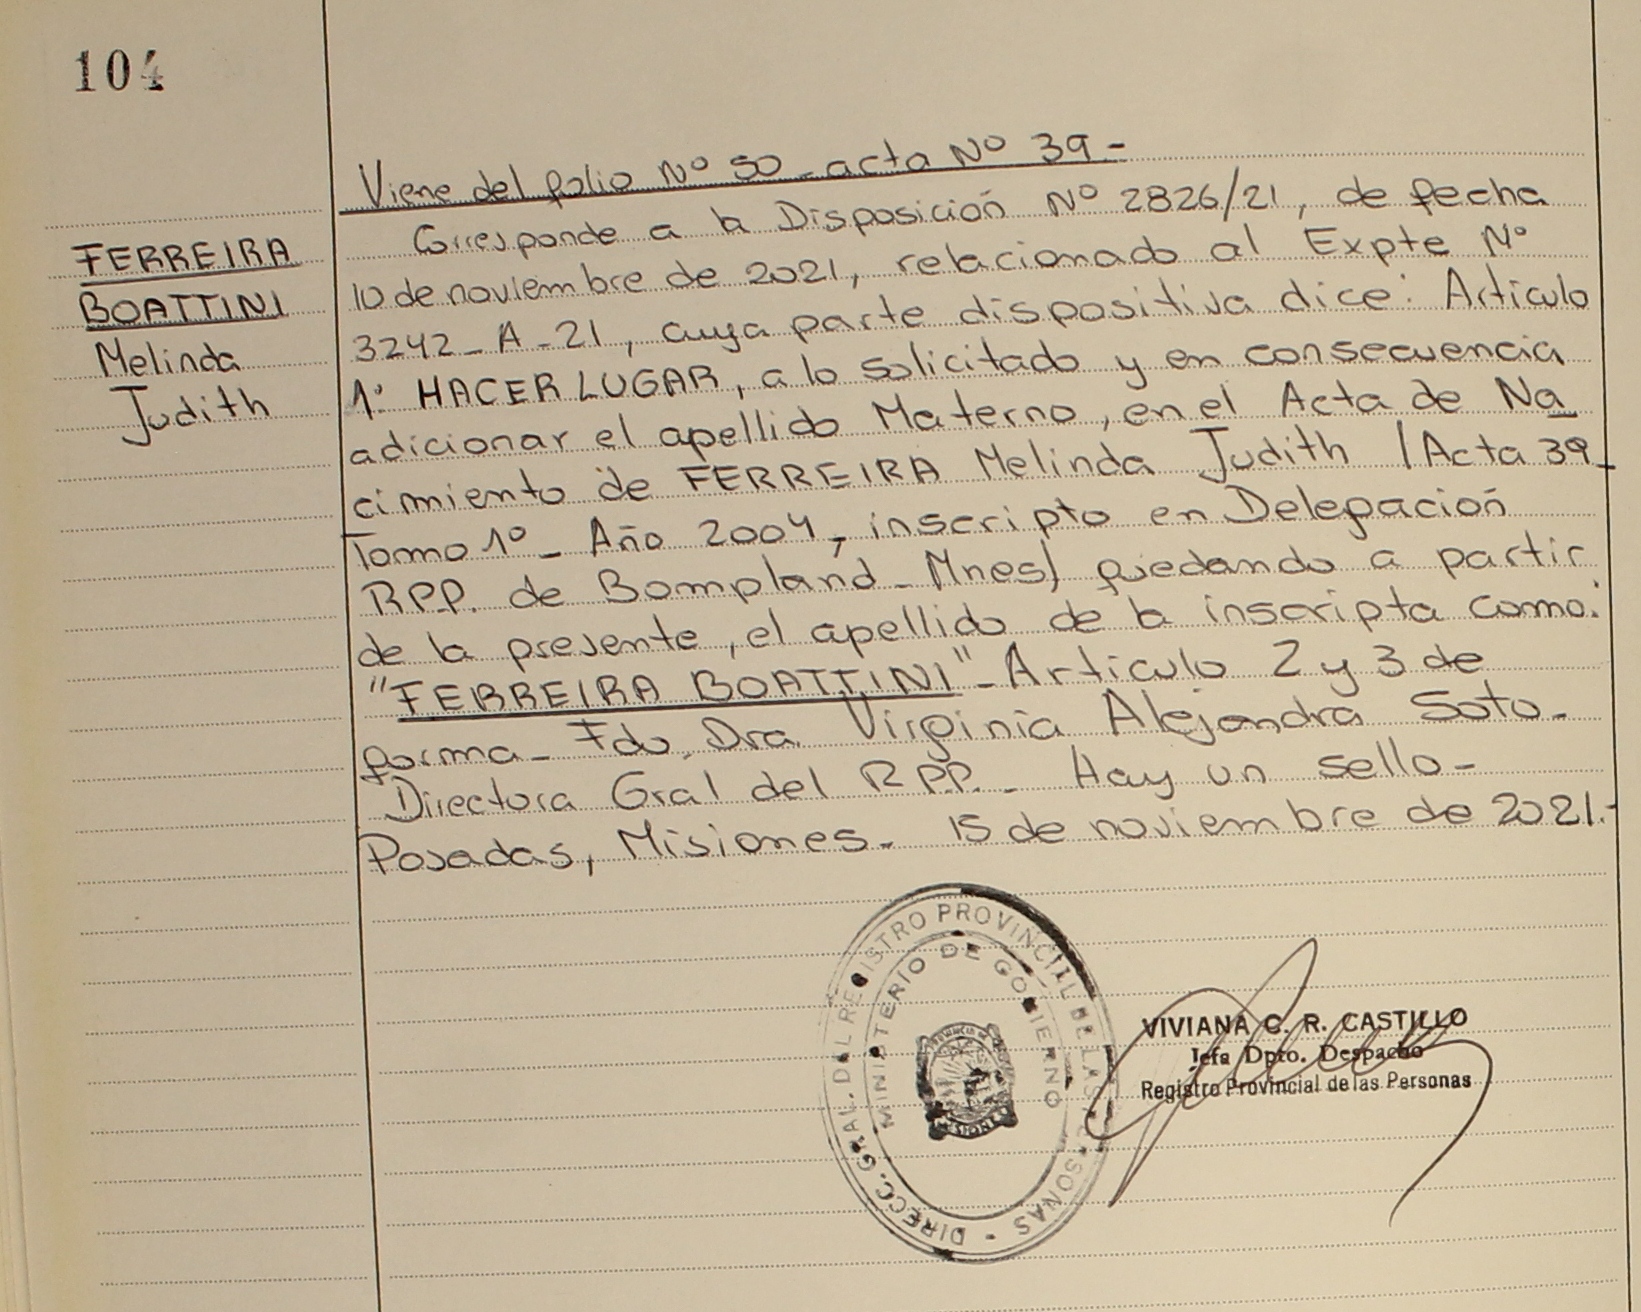 104
Viene del folio Nº 50 - acta Nº 39 -
FERREIRA
BOATTINI
Melinda
Judith
Corresponde a la Disposición Nº 2826/21, de fecha
10 de noviembre de 2021, relacionado al Expte Nº
3242 - A - 21, cuya parte dispositiva dice: Artículo
1º: HACER LUGAR, a lo solicitado y en consecuencia
adicionar el apellido Materno, en el Acta de Na
cimiento de FERREIRA Melinda Judith /Acta 39 -
Tomo 1º - Año 2004, inscripto en Delegación
RPP. de Bompland - Mnes/ quedando a partir
de la presente, el apellido de la inscripta como:
"FERREIRA BOATTINI" - Artículo 2 y 3 de
forma - Fdo. Dra. Virginia Alejandra Soto -
Directora Gral del RPP. - Hay un sello -
Posadas, Misiones. - 15 de noviembre de 2021.-
DIRECC. GRAL. DEL REGISTRO PROVINCIAL DE LAS PERSONAS -
MINISTERIO DE GOBIERNO
PROVINCIA DE
MISIONES
VIVIANA C. R. CASTILLO
Jefa Dpto. Despacho
Registro Provincial de las Personas